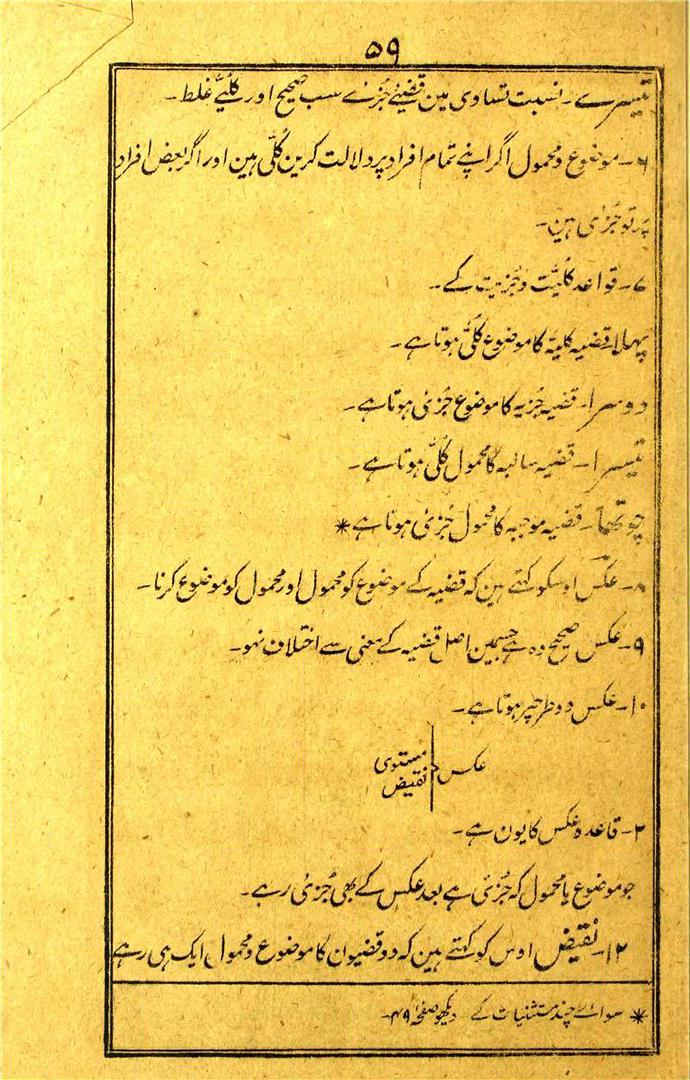 ۵۹
تیسرے۔ نسبت تساوی مین قضیئے جُزئے سب صحیح اور کلیّے غلط۔
۶۔ موضوع و محمول اگر اپنے تمام افراد پر دلالت کرین کُلّی ہین اور اگر بعض افراد
پر تو جُزئی ہین۔
۷۔ قواعد کلیّت و جُزیت کے۔
پہلا۔ قضیہ کلیّہ کا موضوع کُلّی ہوتا ہے۔
دوسرا۔ قضیہ جُزیہ کا موضوع جُزئی ہوتا ہے۔
تیسرا۔ قضیہ سالبہ کا محمول کُلّی ہوتا ہے۔
چوتھا۔ قضیہ موجبہ کا محمول جُزئی ہوتا ہے *
۸۔ عکس اوسکو کہتے ہین کہ قضیہ کے موضوع کو محمول اور محمول کو موضوع کرنا۔
۹۔ عکس صحیح وہ ہے جسمین اصل قضیہ کے معنی سے اختلاف نہو۔
۱۰۔ عکس دو طرحپر ہوتا ہے۔
عکس
مستوی
نقیض
۲۔ قاعدہ عکس کا یون ہے۔
جو موضوع یا محمول کہ جُزئی ہے بعد عکس کے بھی جُزئی رہے۔
۱۲۔ نقیض اوس کو کہتے ہین کہ دو قضیون کا موضوع و محمول ایک ہی رہے
* سوائے چند مستثنیات کے دیکھو صفحہ ۴۹۔